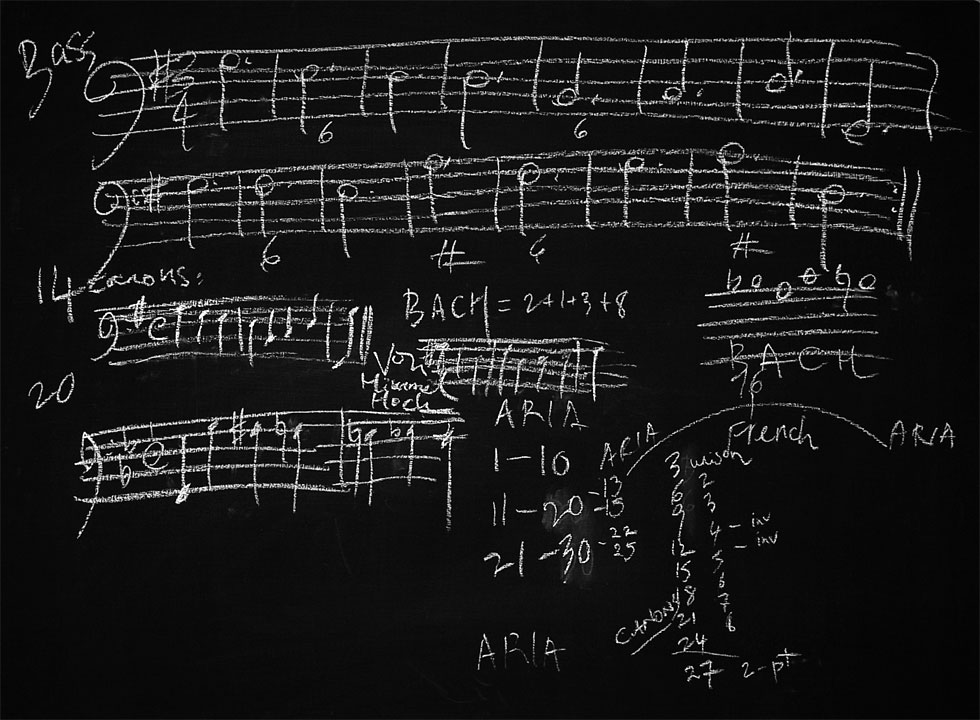 Bass
3
4
6 6
6 # 6 #
14 canons:
BACH = 2+1+3+8
Von
Himmel
Hoch
BACH
20
16
ARIA
French
ARIA ARIA
1-10
11-20 -13
-15
21-30 -22
25
3 unison
6 2
9 3
4 - inv
12 5 - inv
15 6
18 7
21 8
24
27 2-pt
CANONS
ARIA